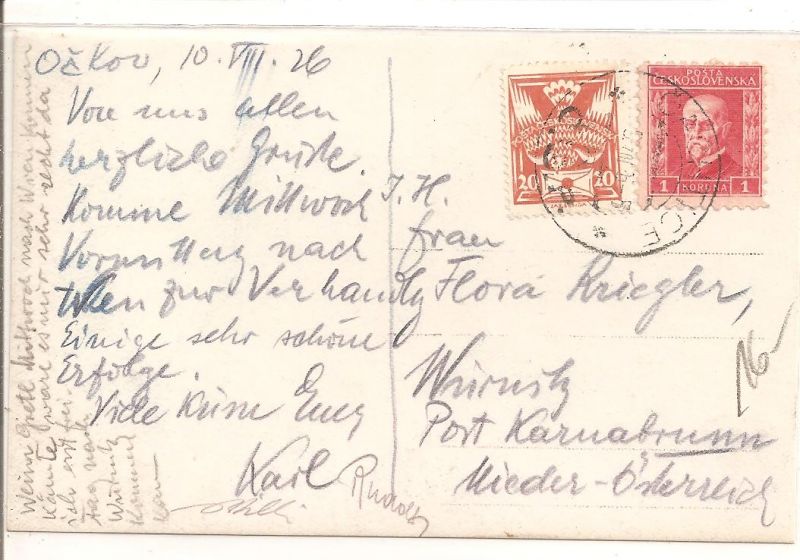 Očkov, 10. VIII. 26
Von uns allen
herzliche Grüße.
Komme Mittwoch
Vormittag nach
Wien zur Verhandlg
Einige sehr schöne
Erfolge.
Viele Küsse Euer
Karl
Rudolf
Wenn Gretl Mittwoch nach Wien kommen
könnte, wäre es mir sehr recht da
ich erst
Tag nach
Würnitz
kommen
kann
POŠTA
ČESKOSLOVENSKA
20 20
1 KORUNA 1
I. H.
Frau
Flora Kriegler,
Würnitz
Post Karnabrunn
Nieder-Österreich